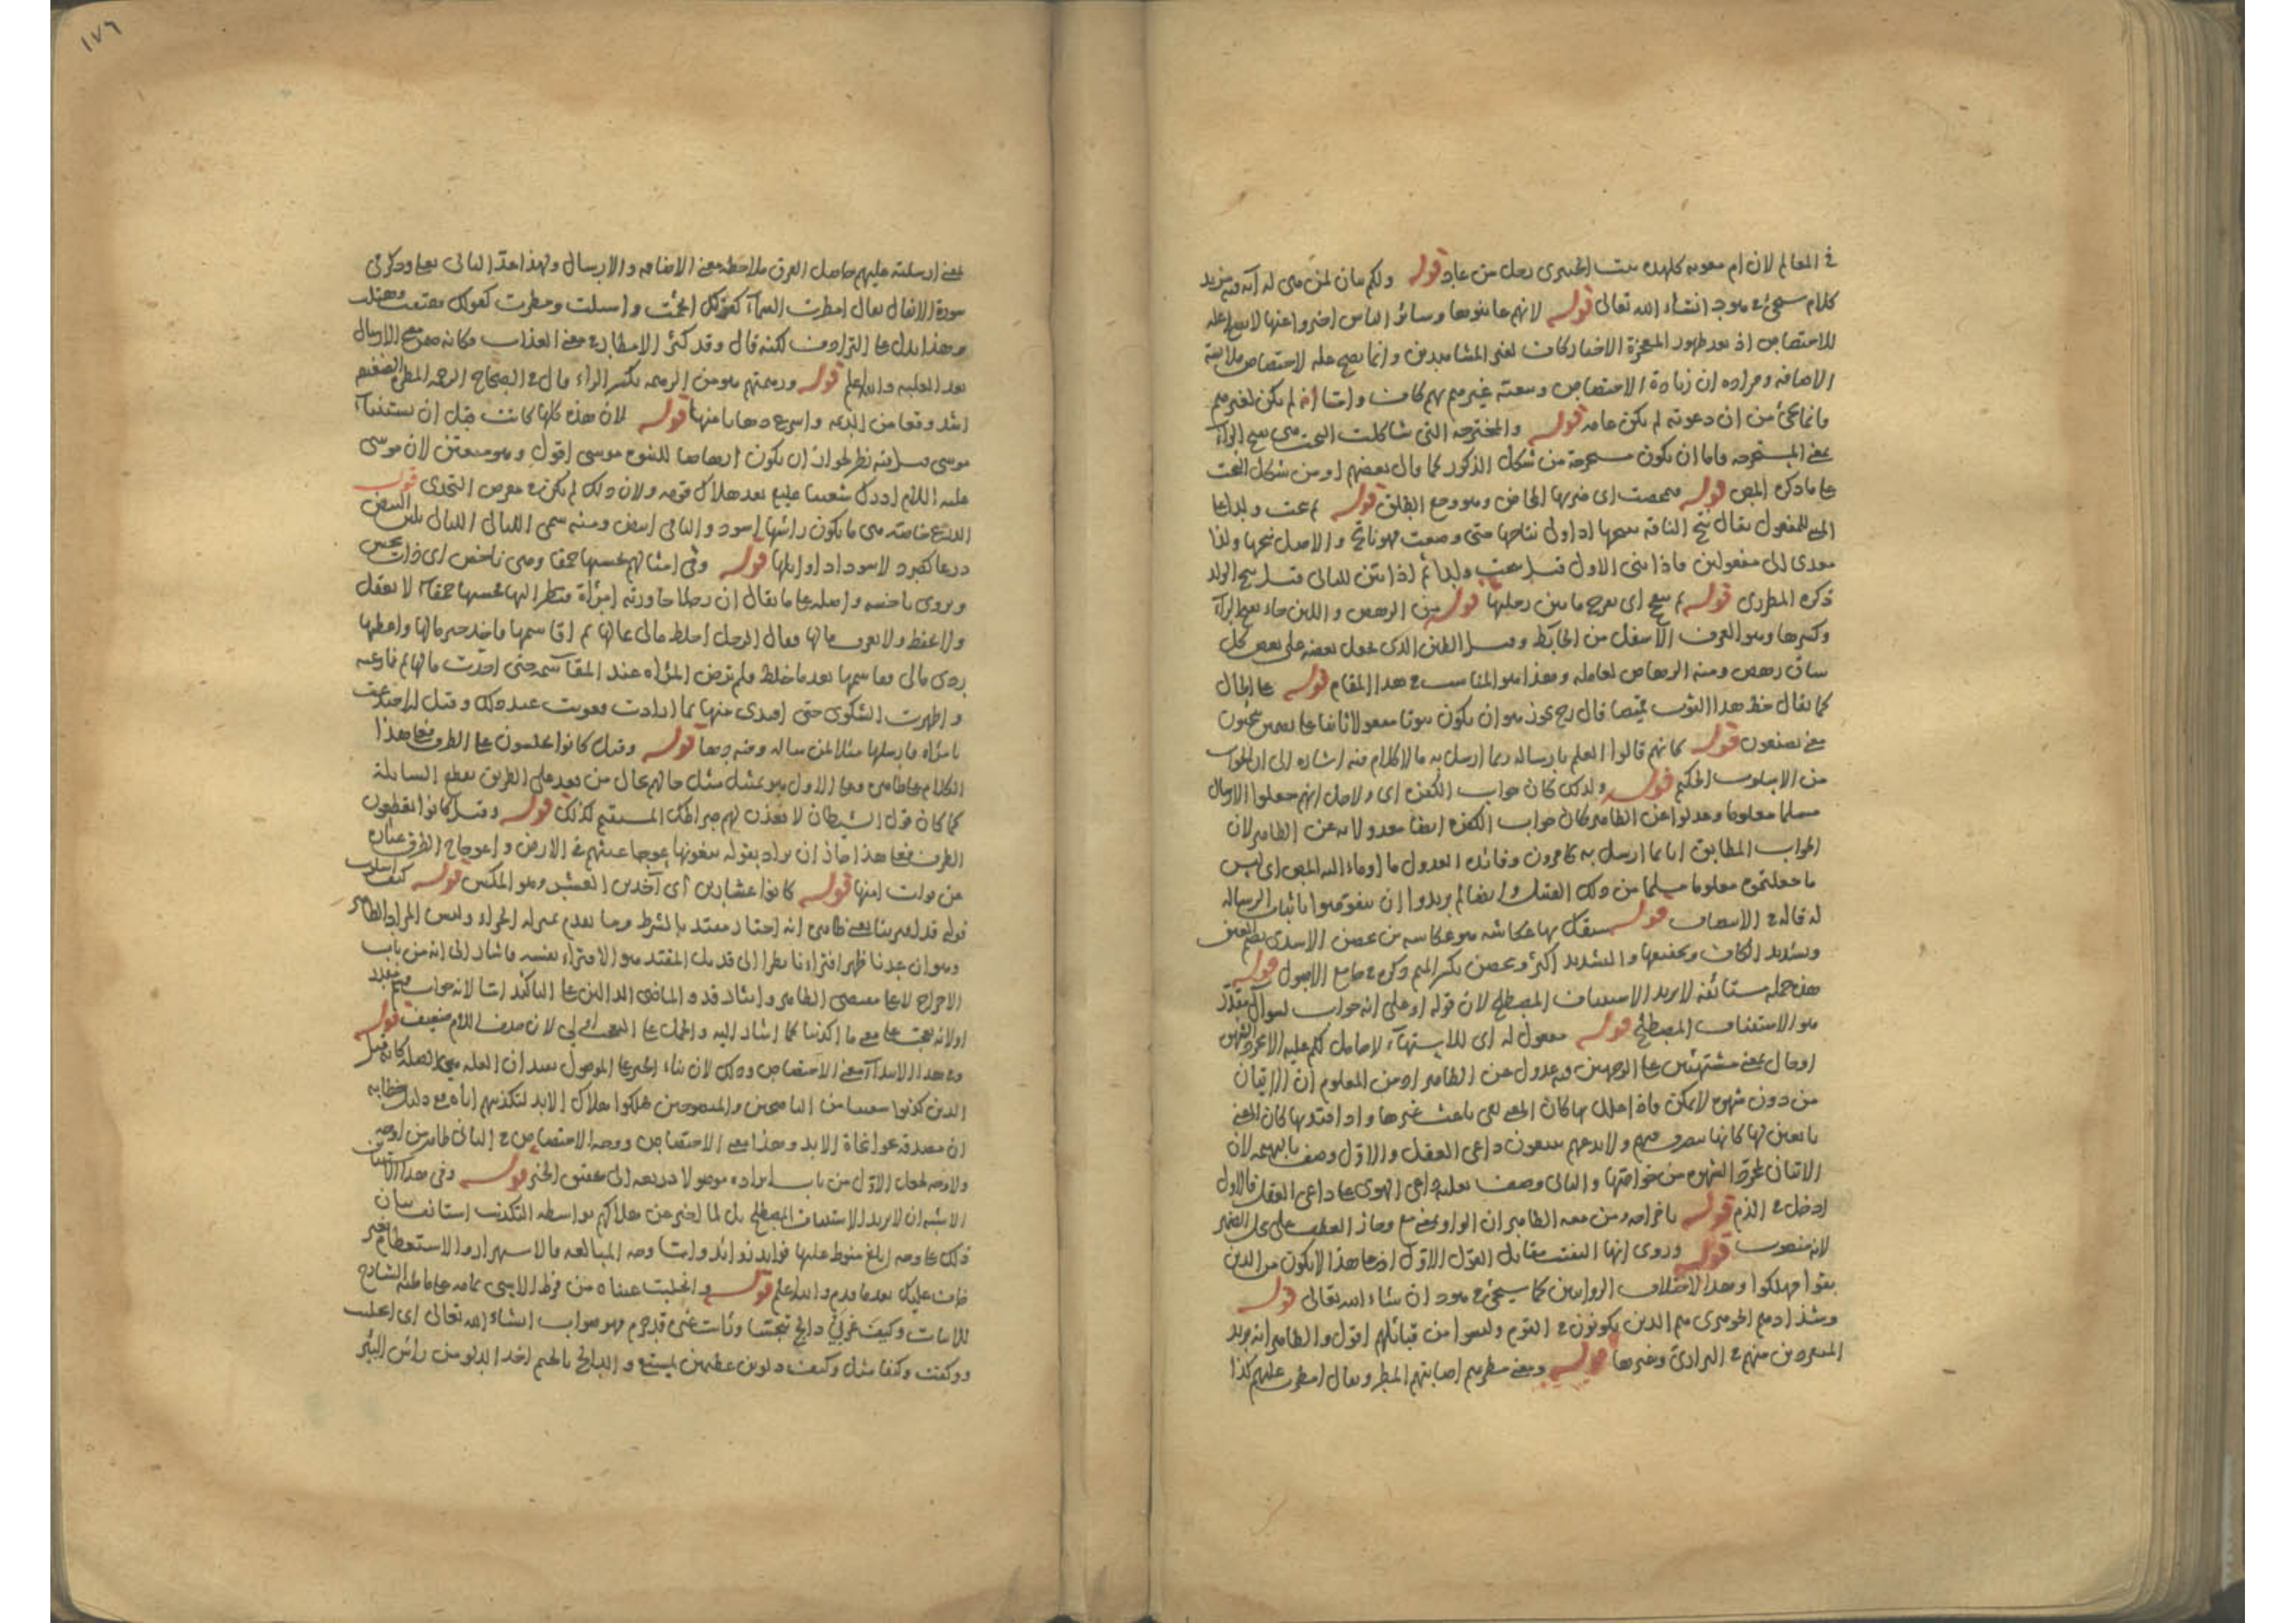 في المعالم لان ام معوية كلهدة بنت الخيبري رجل من عاد قوله ولكم بيان لمن هي له آية وفيه مزيد
كلام سيجيء في هود انشاء الله تعالى قوله لانهم عاينوها وسائر الناس اخبروا عنها لا يصح علة
للاختصاص اذ بعد ظهور المعجزة الاخبار كاف لغير المشاهدين وانما يصح علة لاختصاص ملابسة
الاضافة ومراده ان زيادة الاختصاص وسعته غيرهم بهم كاف واما انه لم يكن لغيرهم
فانما يجيء من ان دعوته لم يكن عامة قوله والمخترجة التي شاكلت البخت هي بفتح الراء
بمعنى المستخرجة فاما ان يكون مستخرجة من شكل الذكور كما قال بعضهم او من شكل البخت
على ما ذكره المص قوله فتمخضت اى ضربها المخاض وهو وجع الطلق قوله ثم نتجت ولدا على
المبني للمفعول يقال نتج الناقة ينتجها اذا ولي نتاجها حتى وضعت فهو ناتج والاصل نتجها ولدا
معدى الى مفعولين فاذا بني الاول قيل نتجت ولدا ثم اذا بني للثاني قيل نتج الولد
ذكره المطرزي قوله ثم تفحج اى تفرج ما بين رجليها قوله من الرهص واللبن جاء بفتح الراء
وكسرها وهو العرق الاسفل من الحائط وقيل الطين الذي يجعل بعضه على بعض كل
ساق رهص ومنه الرهاص لعامله وهذا هو المناسب في هذا المقام قوله على الحال
كما يقال خط هذا الثوب قميصا قال رح يجوز هو ان يكون بيوتا مفعولا ثانيا على تضمين تنحتون
معنى تصنعون قوله كانهم قالوا العلم بارساله وبما ارسل به ما لا كلام فيه اشارة الى ان الجواب
من الاسلوب الحكيم قوله ولذلك كان جواب الكفرة اى ولاجل انهم جعلوا الارسال
مسلما معلوما وعدلوا عن الظاهر كان جواب الكفرة ايضا معدولا به عن الظاهر لان
الجواب المطابق انا بما ارسل به كافرون وفائدة العدول ما اوماء اليه المص اى ليس
ما جعلتموه معلوما مسلما من ذلك القبيل وايضا لم يريدوا ان يتفوهوا باثبات الرسالة
له قاله في الانتصاف قوله سبقك بها عكاشة هو عكاشة بن محصن الاسدي بضم العين
وتشديد الكاف وتخفيفها والتشديد اكثر ومحصن بكسر الميم ذكره في جامع الاصول قوله
هذه جملة مستأنفة لا يريد الاستيناف المصطلح لان قوله او على انه جواب لسوال مقدر
هو الاستيناف المصطلح قوله مفعول له اى للاشتهاء لا حامل لكم عليه الا مجرد الشهوة
او حال بمعنى مشتهيين على الوجهين فيه عدول عن الظاهر اذ من المعلوم ان الاتيان
من دون شهوة لا يمكن فاذا علل بها كان المعنى نفي باعث غيرها واذا قيد بها كان المعنى
تابعين لها لانها تصرفهم ولا تدعهم يتبعون داعي العقل والاول وصف بالبهيمة لان
الاتيان لمجرد الشهوة من خواصها والثاني وصف بغلبة داعي الهوى على داعي العقل فالاول
ادخل في الذم قوله باخراجه ومن معه الظاهر ان الواو بمعنى مع وجاز العطف على محل الضمير
لانه منصوب قوله وروى انها التفتت مقابل القول الاول اذ على هذا لا يكون من الذين
بقوا فهلكوا وهذا لاختلاف الروايتين كما سيجيء في هود ان شاء الله تعالى قوله
وشذاذهم الجوهري هم الذين يكونون في القوم وليسوا من قبائلهم اقول والظاهر انه يريد
المتفردين منهم في البوادي وغيرها قوله ومعنى مطرتهم اصابتهم بالمطر ويقال امطرت عليهم كذا
١٧٦
بمعنى ارسلته عليهم حاصل الفرق ملاحظة معنى الاضافة والارسال ولهذا عدّ الثاني بعلى وذكر في
سورة الانفال يقال امطرت السماء كقولك انجمت واسبلت ومطرت كقولك هتنت وهتلت
وهذا يدل على الترادف لكنه قال وقد كثر الامطار في معنى العذاب وكانه صريح الارسال
بعد الغلبة والله اعلم قوله ورهمتهم هو من الرهمة بكسر الراء قال في الصحاح الرهمة المطرة الضعيفة
اشد وقعا من الديمة واسرع ذهابا منها قوله لان هذه كلها كانت قبل ان يستنباء
موسى فيه نظر لجواز ان يكون ارهاصا للنبوة موسى اقول وهو متعين لان موسى
عليه السلام ادرك شعيبا عليهما بعد هلاك قومه ولان ذلك لم يكن في معرض التحدي قوله
الدرع خاصة هي ما يكون رأسها اسود والباقي ابيض ومنه سمي الليالي الليالي تلي البيض
درعا كصرد لاسوداد اوايلها قوله وفي امثالهم تحسبها حمقا وهي باخس اى ذات بخس
ويروى باخسة واصله على ما يقال ان رجلا جاورته امرأة فنظر اليها فحسبها حمقاء لا تعقل
ولا تحفظ ولا تعرف مالها فقال الرجل اخلط مالي بمالها ثم اقاسمها فآخذ خير مالها واعطيها
ردي مالي فقاسمها بعد ما خلط فلم ترض المرأة عند المقاسمة حتى اخذت مالها ثم نازعته
واظهرت الشكوى حتى افتدى منها بما ارادت فعوتب عند ذلك
قوله وقيل كانوا يجلسون على الطرق فعلى هذا
الكلام على ظاهره وعلى الاول هو تمثيل مثل حالهم بحال من يقعد على الطريق يقطع السابلة
كما كان قول الشيطان لاقعدن لهم صراطك المستقيم كذلك قوله وقيل كانوا يقطعون
الطرق فعلى هذا جاز ان يراد بقوله تبغونها عوجا عيثهم في الارض واعوجاج الطرق عبارة
عن فوات امنها قوله كانوا عشارين اى آخذين العشر وهو المكس قوله كيف اسلوب
قوله قد افترينا يعني ظاهره انه اخبار مقيد بالشرط وما تقدم بمنزلة الجزاء وليس المراد الظاهر
وهو ان عدنا ظهر افتراءنا نظرا الى قد بل المقيد هو الافتراء نفسه فاشار الى انه من باب
الاخراج لا على مقتضى الظاهر وايثار قد والماضي الدالين على التاكيد اما لانه جواب قسم مقدر
اولانه تعجب على معنى ما اكذبنا كما اشار اليه والحمل على التعجب اولى لان حذف اللام ضعيف قوله
وفي هذا الابتداء معنى الاختصاص وذلك لان بناء الخبر على الموصول يفيد ان العلة هي الصلة كانه قيل
الذين كذبوا شعيبا من الناصحين والمنصوحين هلكوا هلاك الابد لتكذيبهم اياه مع دليل خطابه
ان مصدقيه نجوا نجاة الابد وهذا معنى الاختصاص ووجه الاختصاص في الثاني ظاهر من اوجه
ولا وجه لجعل الاول من باب ايراده موصولا ذريعة الى تحقيق الخبر قوله وفي هذا الاستيناف
الاشبه ان لا يريد الاستيناف المصطلح بل لما اخبر عن هلاكهم بواسطة التكذيب استانف بيان
ذلك على وجه ابلغ منوط عليها فوايد زوائد واما وجه المبالغة فالاستهزاء والاستعظام غير
خاف عليك بعد ما قدم والله اعلم قوله وانحلبت عيناه من فرط الاسى تمامه على ما ظنه الشارح
للابيات وكيف غربي دالج تبجسا وثاب عنى قد جزم فهو صواب انشاء الله تعالى اى انحلبت
ووكفت وكفا مثل وكيف دلوين عظيمين يستقي والدالج بالجيم اخذ الدلو من رأس البئر